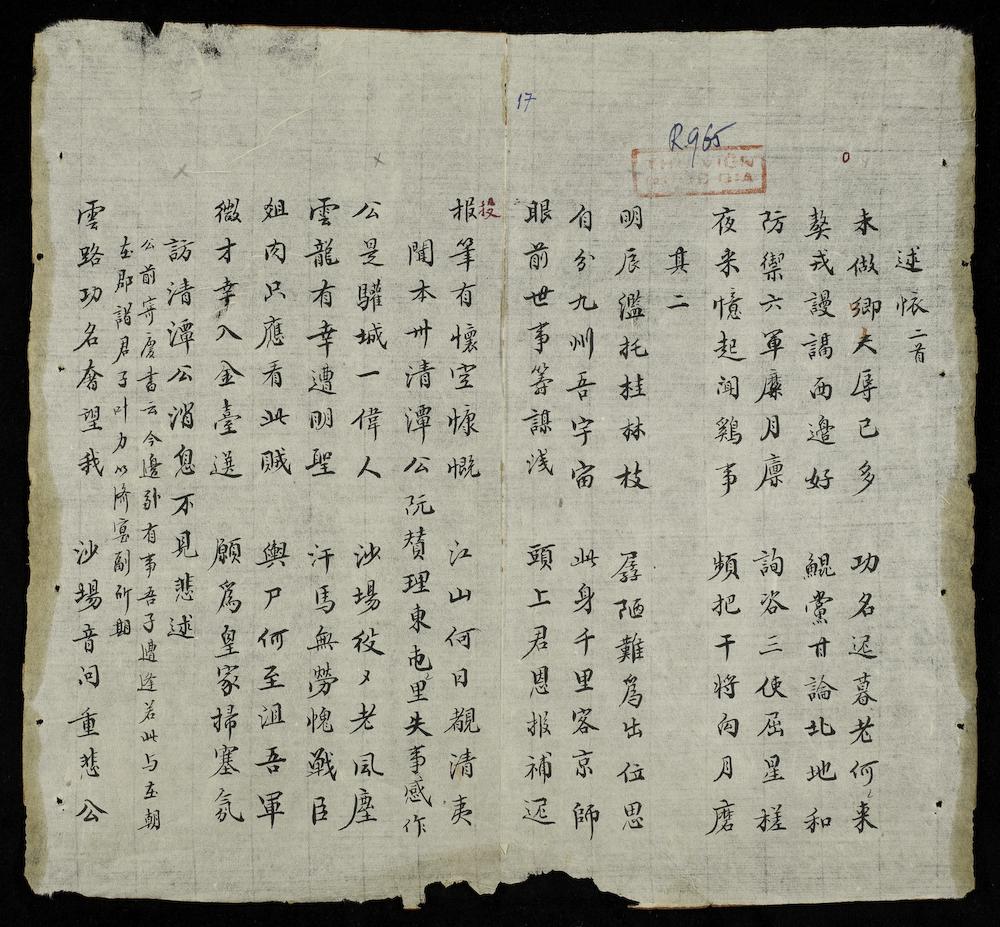 17
R.965
THƯ VIỆN
QUỐC GIA
述懷二首
未做卿夫辱已多 功名遲暮老何來
獒戎謾講西邊好 鯤黨甘論北地和
防禦六軍糜月廩 詢咨三使屈星槎
夜來憶起聞鷄事 頻把干將向月磨
其二
明辰濫托桂林枝 孱陋難爲出位思
自分九州吾宇宙 此身千里客京師
眼前世事籌謀浅 頭上君恩报補迟
投
报筆有懷空慷慨 江山何日覩清夷
聞本州清潭公阮賛理東屯里失事感作
公是驩城一偉人 沙場役役老風塵
雲龍有幸遭明聖 汗馬無勞愧戰臣
俎肉只應看此賊 輿尸何至沮吾軍
微才幸入金臺選 願爲皇家掃塞氛
訪清潭公消息不見悲述
公前寄度書云今邊弭有事吾子遭逢若此与在朝
在郡諸君子叶力以濟寔副所期
雲路功名奢望我 沙場音问重悲公